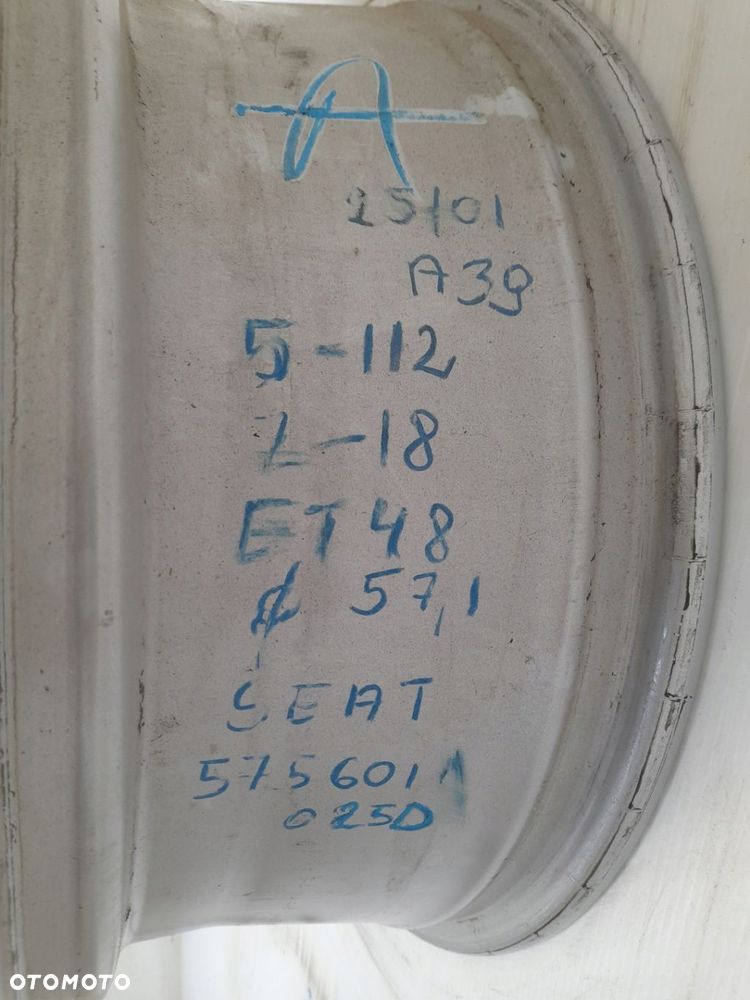 A
25/01
A39
5-112
7-18
ET 48
ȼ 57,1
SEAT
575601
025D
OTOMOTO